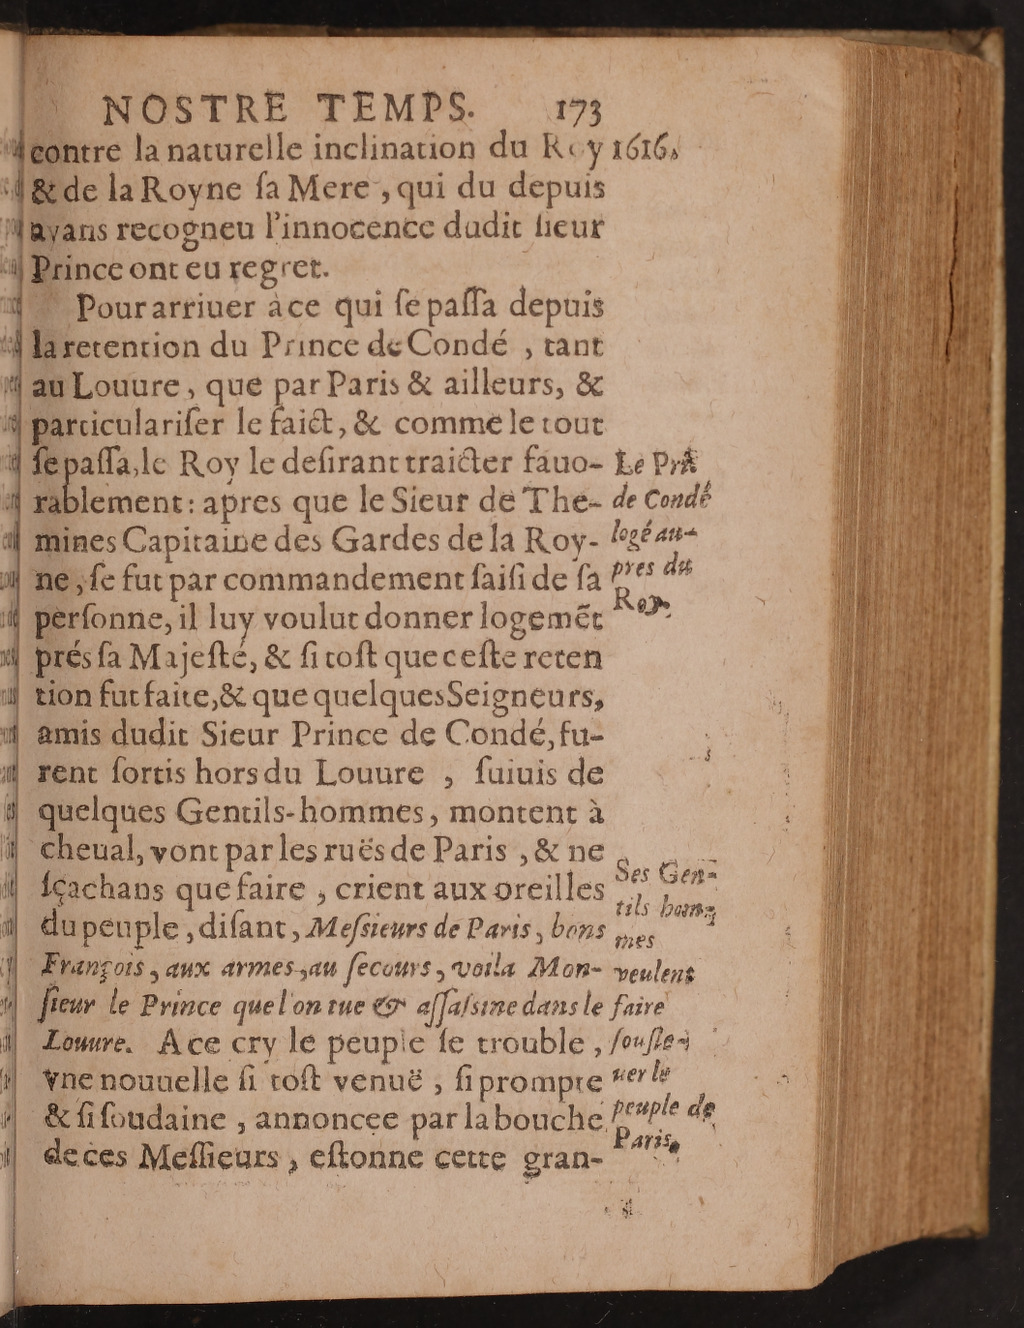 NOSTRE TEMPS. 173
contre la naturelle inclination du Roy 1616.
& de la Royne ſa Mere, qui du depuis
ayans recogneu l'innocence dudit ſieur
Prince ont eu regret.
Pour arriuer à ce qui ſe paſſa depuis
la retention du Prince de Condé , tant
au Louure, que par Paris & ailleurs, &
particulariſer le faict, & comme le tout
ſe paſſa, le Roy le deſirant traicter fauo-
rablement: apres que le Sieur de The-
mines Capitaine des Gardes de la Roy-
ne, ſe fut par commandement ſaiſi de ſa
perſonne, il luy voulut donner logemẽt
prés ſa Majeſté, & ſi toſt que ceſte reten
tion fut faite, & que quelques Seigneurs,
amis dudit Sieur Prince de Condé, fu-
rent ſortis hors du Louure , ſuiuis de
quelques Gentils-hommes, montent à
cheual, vont par les ruës de Paris , & ne
ſçachans que faire , crient aux oreilles
du peuple, diſant, Meſsieurs de Paris, bons
François, aux armes, au ſecours, voila Mon-
ſieur le Prince que l'on tue & aſſaſsine dans le
Louure. A ce cry le peuple ſe trouble ,
vne nouuelle ſi toſt venuë , ſi prompte
& ſi ſoudaine , annoncee par la bouche
de ces Meſſieurs , eſtonne cette gran-
Le Prĩ
de Condé
logé au-
pres du
Roy.
Ses Gen-
tils hom-
mes
veulent
faire
ſouſle-
uer le
peuple de
Paris.